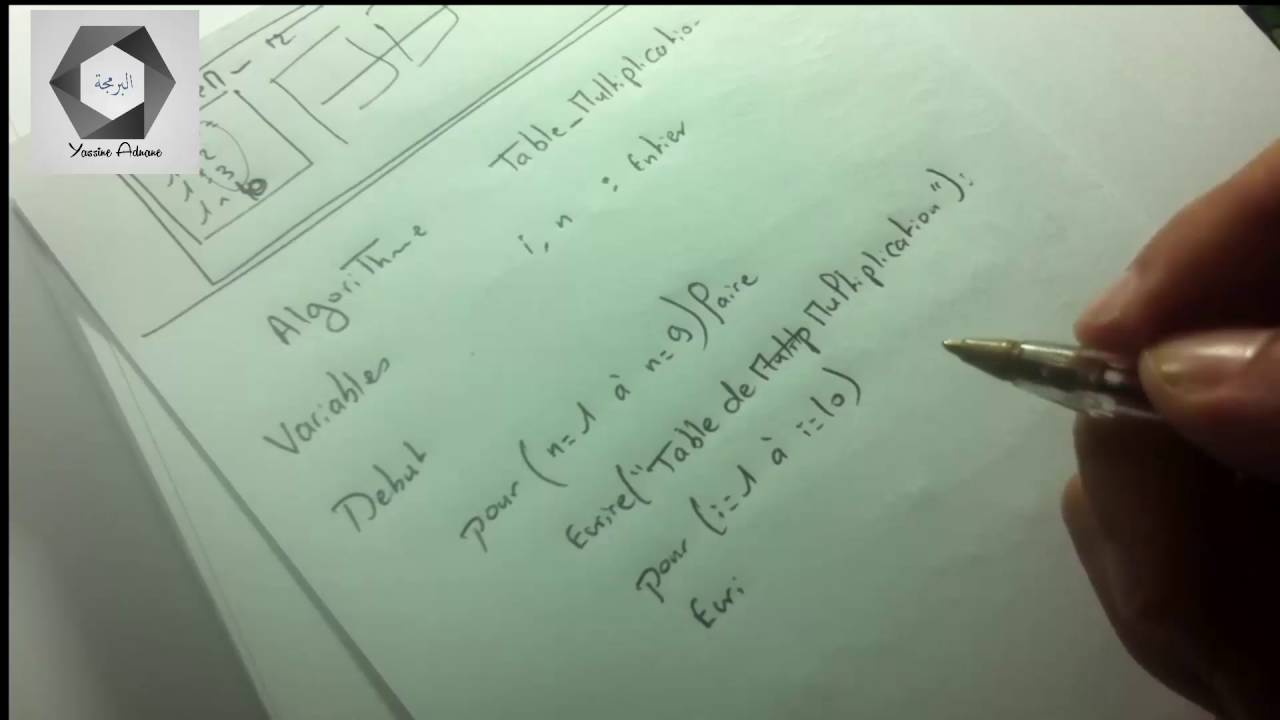 البرمجة
Yassine Adnane
Algorithme Table_Multiplication
Variables i, n : Entier
Debut
pour (n=1 à n=9) Faire
Ecrire("Table de Multiplication");
pour (i=1 à i=10)
Ecri